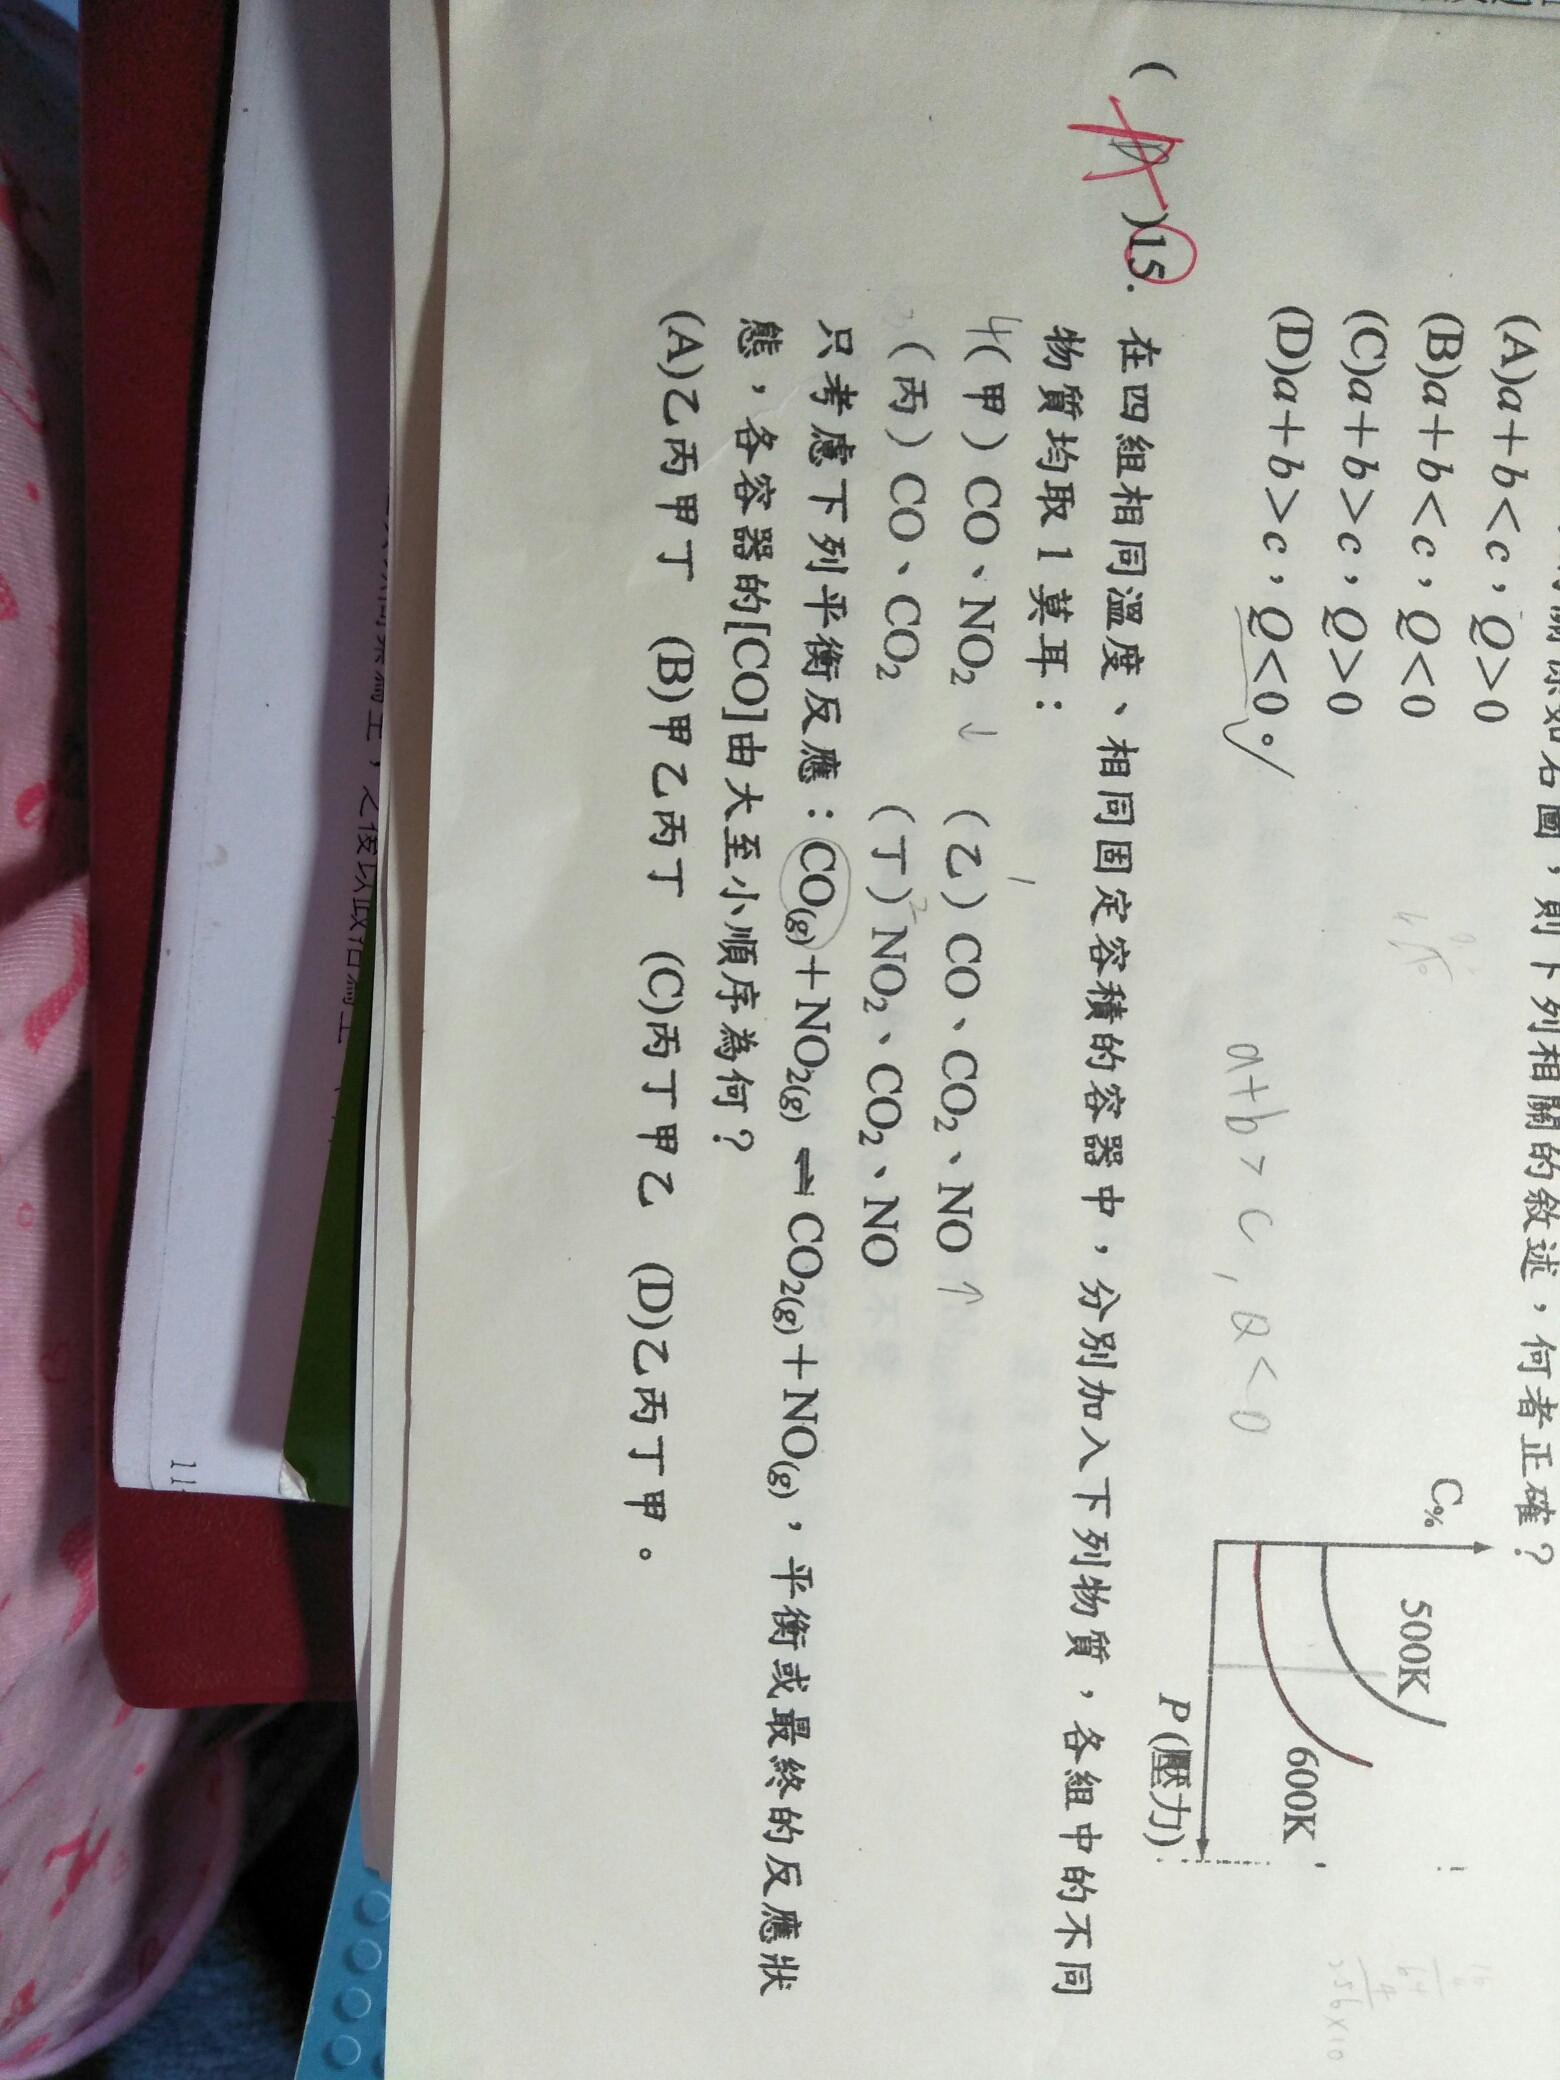 (A)a＋b＜c，Q＞0
(B)a＋b＜c，Q＜0
(C)a＋b＞c，Q＞0
(D)a＋b＞c，Q＜0。
如右圖，則下列相關的敘述，何者正確？
C%
500K
600K
P(壓力)
a+b>c, Q<0
( )15. 在四組相同溫度、相同固定容積的容器中，分別加入下列物質，各組中的不同
物質均取 1 莫耳：
4(甲) CO、NO₂ ↓ (乙) CO、CO₂、NO ↑
(丙) CO、CO₂ (丁) NO₂、CO₂、NO
只考慮下列平衡反應：CO(g)＋NO₂(g) ⇌ CO₂(g)＋NO(g)，平衡或最終的反應狀
態，各容器的[CO]由大至小順序為何？
(A)乙丙甲丁 (B)甲乙丙丁 (C)丙丁甲乙 (D)乙丙丁甲。